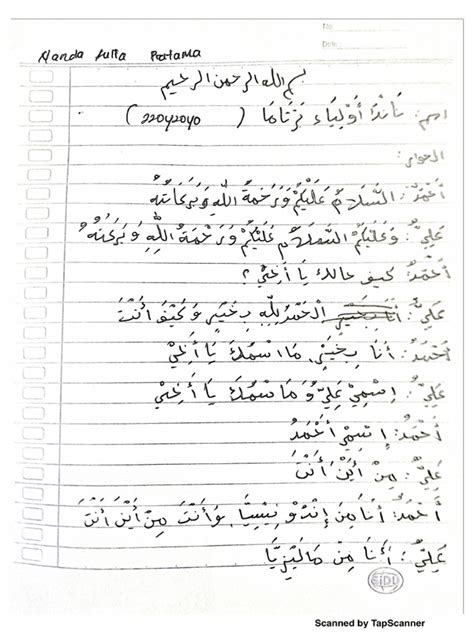 No
Date
Nanda Aulia Pratama
بسم الله الرحمن الرحيم
اسم: نَانْدَا أَوْلِيَاء فَرَتَامَا (22042040)
الحوار:
أَحْمَدُ: السَّلَامُ عَلَيْكُمْ وَرَحْمَةُ اللهِ وَبَرَكَاتُهُ
عَلِيٌّ: وَعَلَيْكُمُ السَّلَامُ عَلَيْكُمْ وَرَحْمَةُ اللهِ وَبَرَكَتُهُ
أَحْمَدُ: كيف حالك يَا أَخِيْ؟
عَلِيٌّ: الْحَمْدُ لِلّهِ بِخَيْرٍ وَكَيْفَ أَنْتَ
أَحْمَدُ: أَنَا بِخَيْرٍ، مَا اسْمُكَ يَا أَخِيْ
عَلِيٌّ: اِسْمِيْ عَلِيٌّ وَمَا سْمُكَ يَا أَخِيْ
أَحْمَدُ: اِسْمِيْ أَحْمَدُ
عَلِيٌّ: مِنْ أَيْنَ أَنْتَ
أَحْمَدُ: أَنَا مِنْ إِنْدُوْنِيْسِيَّا، وَأَنْتَ مِنْ أَيْنَ أَنْتَ
عَلِيٌّ: أَنَا مِنْ مَالَيْزِيَّا
SIDU
Scanned by TapScanner